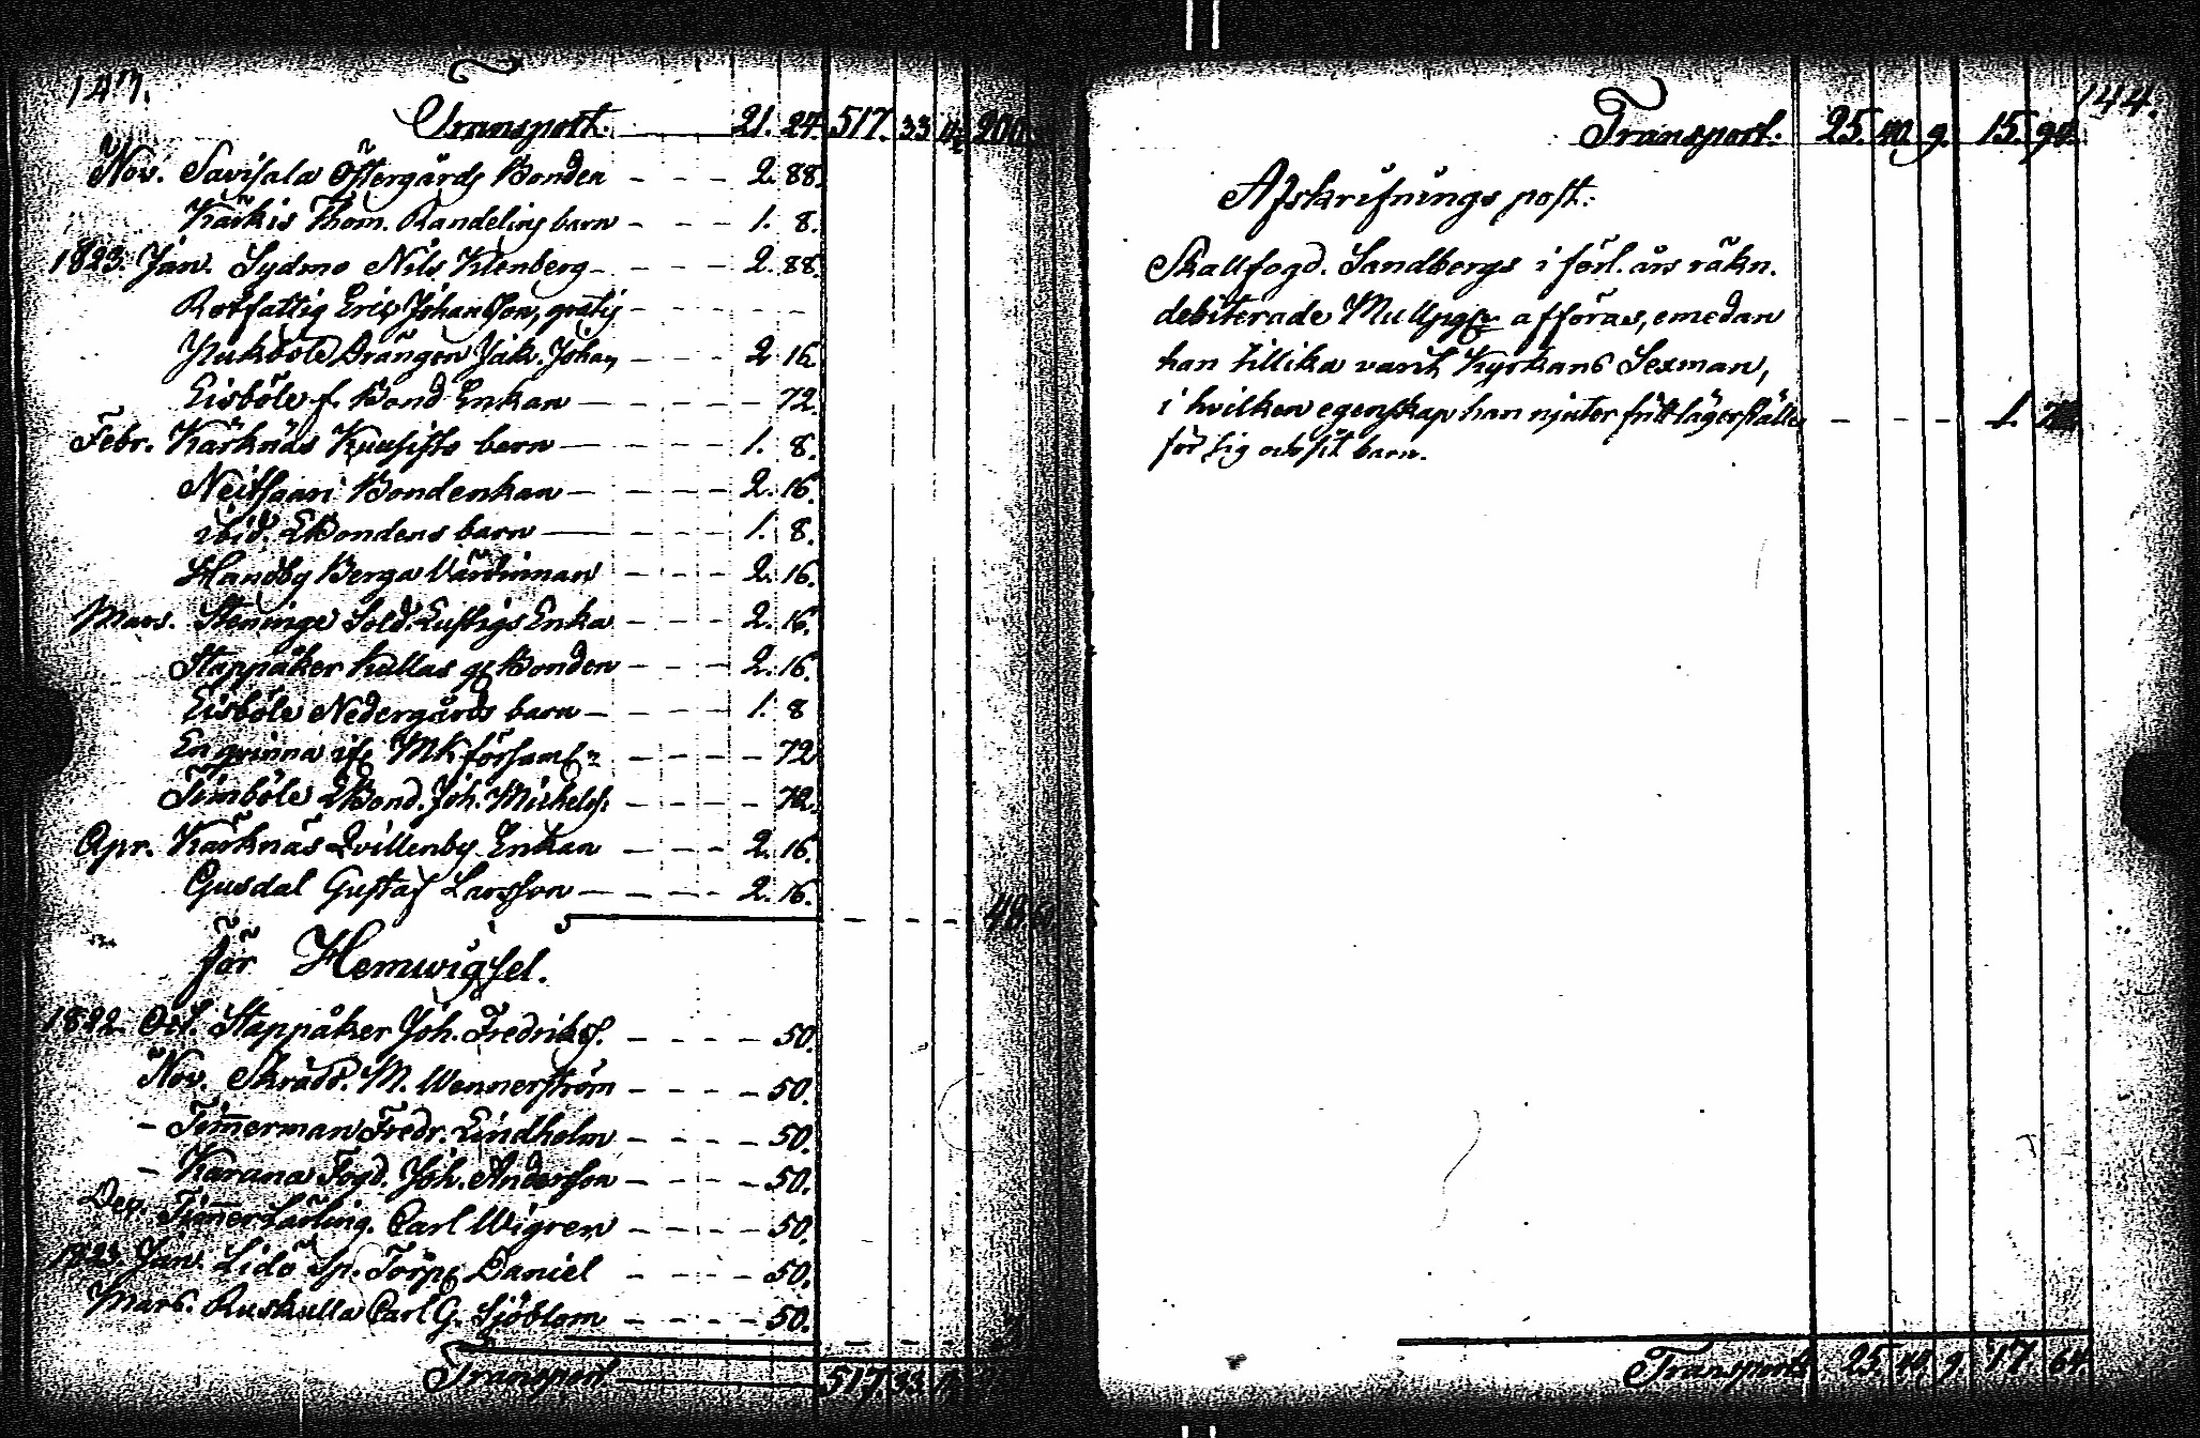 143.
Transport. 21. 24. 517. 33 11 200
Nov. Savisala Östergårds Bonden - - - 2. 88.
Käikis Thom. Randelins barn - - - 1. 8.
1823. Jan. Sydmo Nils Klenberg - - - - 2. 88.
Rotfattig Eric Johansson, gratis - - - - -
Nukböle Drängen Jak. Johan - - - 2 16.
Eisböle f. Bond Enkan - - - - 72.
Febr. Kärknäs Kuusisto barn - - - - 1. 8.
Neitsaari Bondenkan - - - - 2. 16.
ibid. LBondens barn - - - 1. 8.
Handby Berga Värdinnan - - - 2. 16.
Mars. Steninge Sold. Lustigs Enka - - - 2. 16.
Stappåker Kullas gl Bonden - - - 2. 16.
Eisböle Nedergårds barn - - - - 1. 8
En qvinna ifr MKförsaml - - - - 72
Timböle LBond. Joh. Michelss: - - - - 72.
Apr. Kärknäs Qvillenby Enkan - - - 2. 16.
Gusdal Gustaf Larsson - - - - 2. 16.
- - - 48
för Hemwigsel.
1822 Oct. Stappåker Joh. Fredrikss. - - - - 50.
Nov. Skrädd. M. Wennerström - - - - 50.
- Timmerman Fredr. Lindholm - - - - 50.
- Karuna Fogd. Joh. Andersson - - - - 50.
Dec. Timmerlärling. Carl Wigren - - - - 50.
1823. Jan. Lidö Sp. Torps Daniel - - - - 50.
Mars. Ruskulla Carl G. Sjöblom - - - - 50.
Transport 517. 33 11
144.
Transport. 25. 40. 9. 15. 90.
Afskrifnings post:
Skallfogd. Sandbergs i förl. års räkn.
debiterade Mullpgr afföras, emedan
han tillika varit Kyrkans Sexman,
i hvilken egenskap han njuter fritt lägerställe - - - 1.
för sig och sit barn.
Transport 25 40 9 17 64.